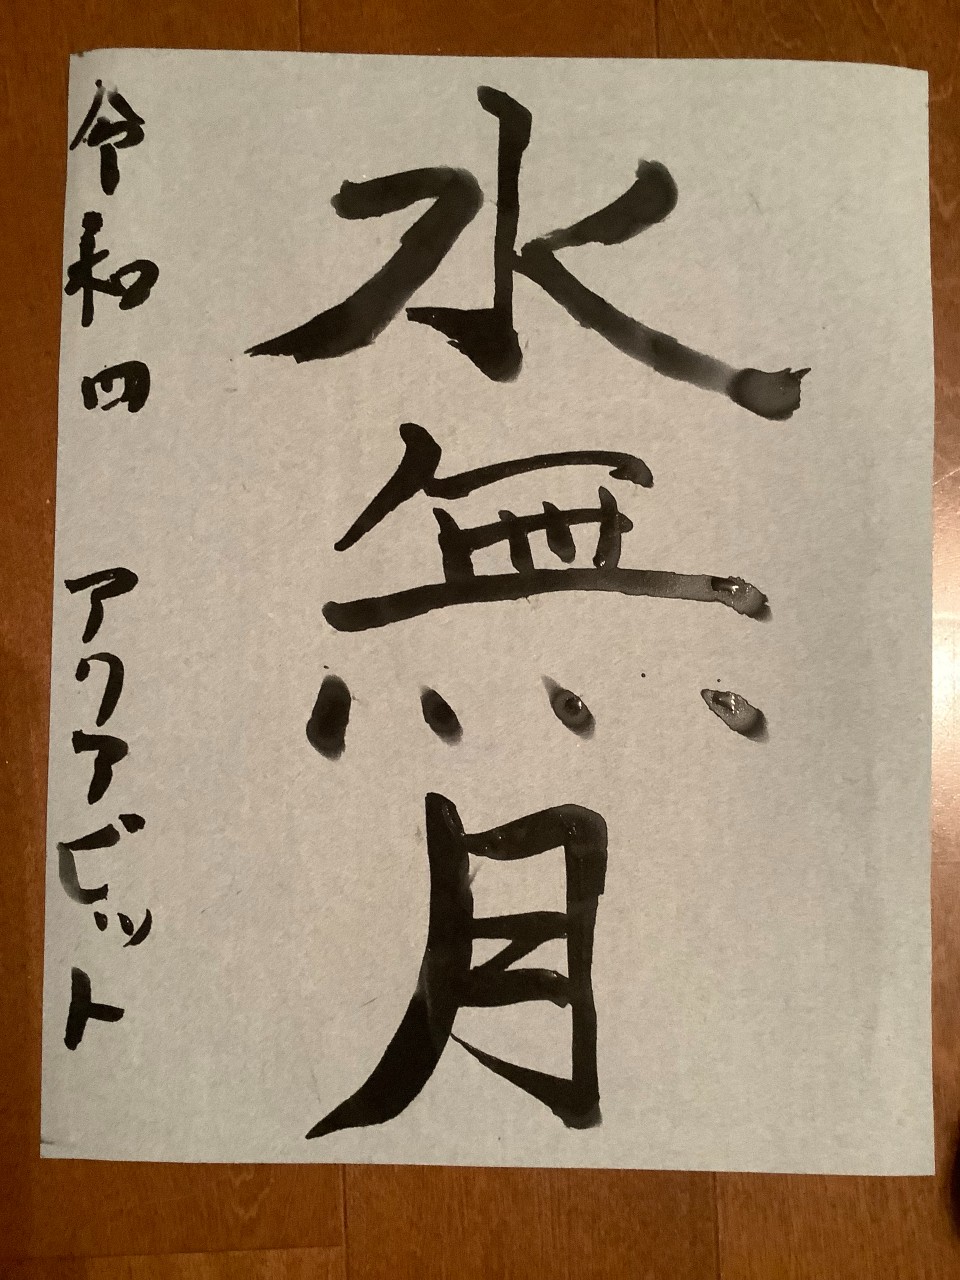 水無月
令和四 アクアビット